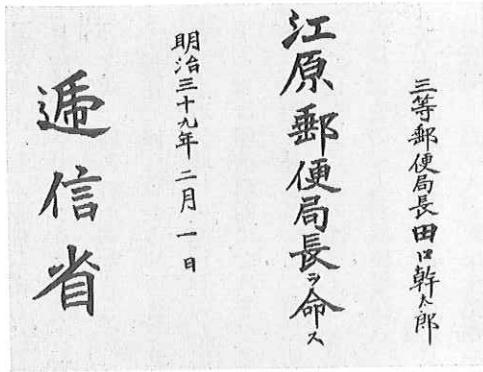 三等郵便局長田口幹太郎
江原郵便局長ヲ命ス
明治三十九年二月一日
遞信省